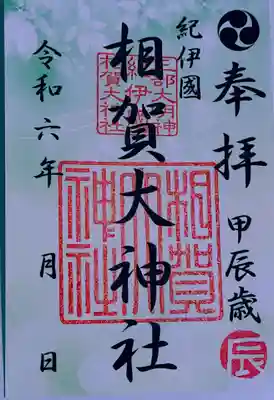 奉拝
甲辰歳
辰
紀伊國
相賀大神社
相賀大神社
令和六年 月 日